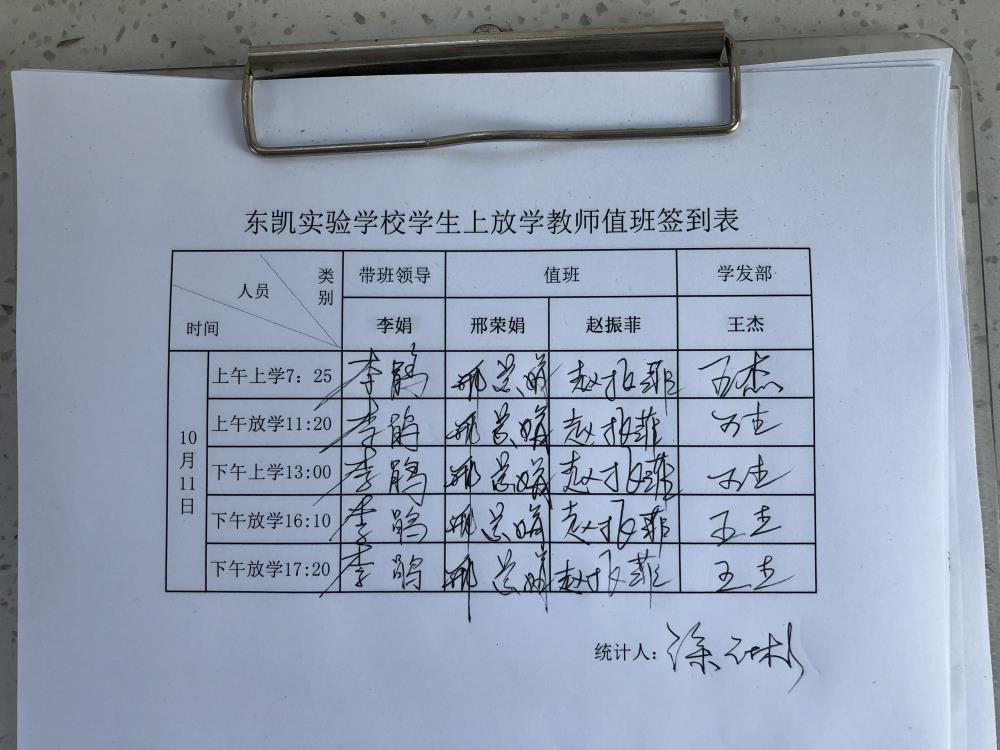 东凯实验学校学生上放学教师值班签到表
类别 人员 时间 带班领导 值班 学发部
李娟 邢荣娟 赵振菲 王杰
10月11日
上午上学7：25 李鹃 邢荣娟 赵振菲 王杰
上午放学11:20 李鹃 邢荣娟 赵振菲 王杰
下午上学13:00 李鹃 邢荣娟 赵振菲 王杰
下午放学16:10 李鹃 邢荣娟 赵振菲 王杰
下午放学17:20 李鹃 邢荣娟 赵振菲 王杰
统计人：徐